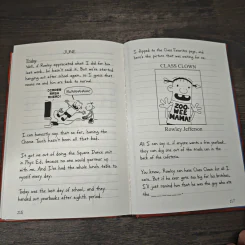 JUNE
Today
well, if Rowley apprecated what I did for him
last week, he hasn't said it. But we're started
hanging out after school again, so I guess that
means me and him are back to normal.
I can honestly say that so far, having the
Cheese Touch hasn't been all that bad.
It got me out of doing the Square Dance unit
in Phys Ed, because no one would partner up
with me. And I've had the whole lunch table to
myself every day.
Today was the last day of school, and they
handed out yearbooks after eighth period.
216
I flipped to the Class Favorites page, and
here's the picture that was waiting for me.
CLASS CLOWN
ZOO-
WEE
MAMA!
Rowley Jefferson
All I can say is, if anyone wants a free yearbook,
they can dig one out of the trash can in the
back of the cafeteria.
You know, Rowley can have Class Clown for all I
care. But if he ever gets too big for his britches,
I'll just remind him that he was the guy who ate
the
217